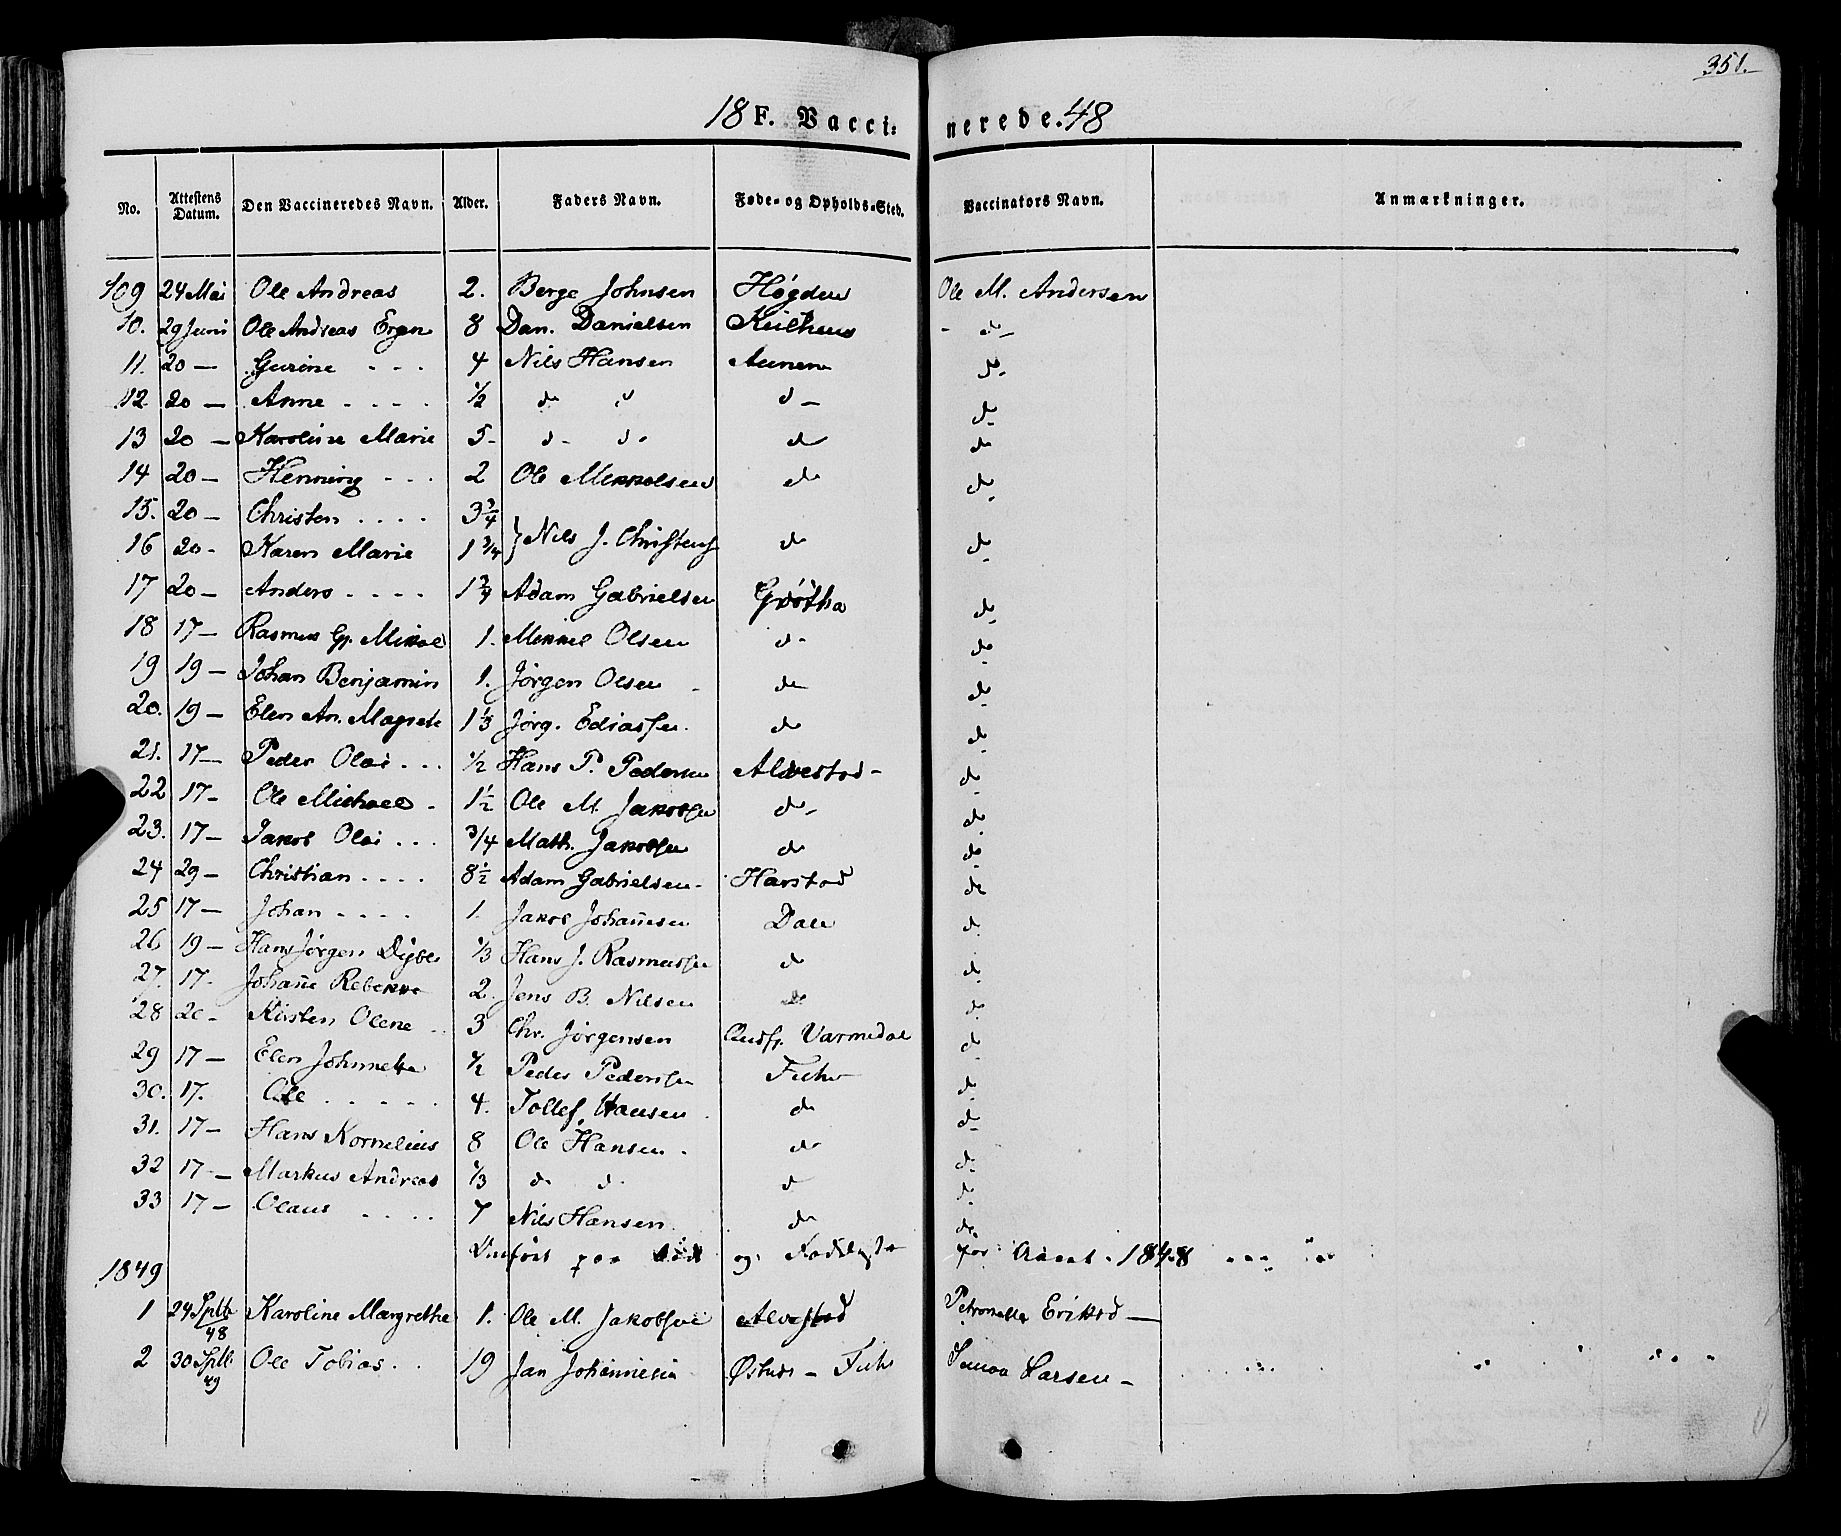 351.
18 F. Vacci- nerede. 48
No. Attestens Datum. Den Vaccineredes Navn. Alder. Faders Navn. Føde- og Opholds-Sted. Vaccinators Navn. Anmærkninger.
109 24 Mai Ole Andreas 2. Berge Johnsen Høgden Ole M. Andersen
10. 29 Juni Ole Andreas 8 Dan. Danielsen - do -
11. 20 — Gurine - - - 4 Nils Hansen Aunen do -
12 20 — Anne - - - - 1/2 do d d - do
13 20 — Karoline Marie 5 - d - do do do
14 20 — Henning - - - 2 Ole Mikkelsen do do
15. 20 — Christen . . . . 3 3/4
16 20 - Karen Marie 1 3/4 } Nils J. Christens do do
17 20 — Anders - - - - 1 3/4 Adam Gabrielsen Grøtha do
18 17 — Rasmus Gj. Mikal 1. Mikkel Olsen d - do
19 19 — Johan Benjamin 1. Jørgen Olsen - do do
20. 19 — Elen An. Magrete 1 1/3 Jørg. Ediassen. do do
21. 17 — Peder Olai - . . 1/2 Hans P. Pedersen Alvestad - do
22 17 - Ole Michael - 1 1/2 Ole M. Jakobsen do - do
23. 17 — Jakob Olai . . . 3/4 Math. Jakobsen do do
24 29 — Christian - . . . 8 1/2 Adam Gabrielsen - Harstad do
25 17 — Johan - - - - 1. Jakob Johannesen Dale do
26 19 — Hans Jørgen 1/3 Hans J. Rasmussen do do
27. 17. Johanne Rebekka 2. Jens B. Nilsen do do
28 20 - Kirsten Olene - 3 Chr. Jørgensen do
29 17 — Elen Johnnetta 1/2 Peder Pedersen do
30. 17. Ole . . . . . 4. Tollef Hansen do do
31. 17 — Hans Kornelius 8 Ole Hansen - do do
32 17 — Markus Andreas 1/3 do d - d do
33 17 — Olaus . . . . 7 Nils Hansen do do
og for Aaret 1848
1849
1 24 Sptb 48 Karoline Margrethe 1. Ole M. Jakobsen Alvestad —
2 30 Sptb 49 Ole Tobias . . 19 Jan Johannesen Larsen -